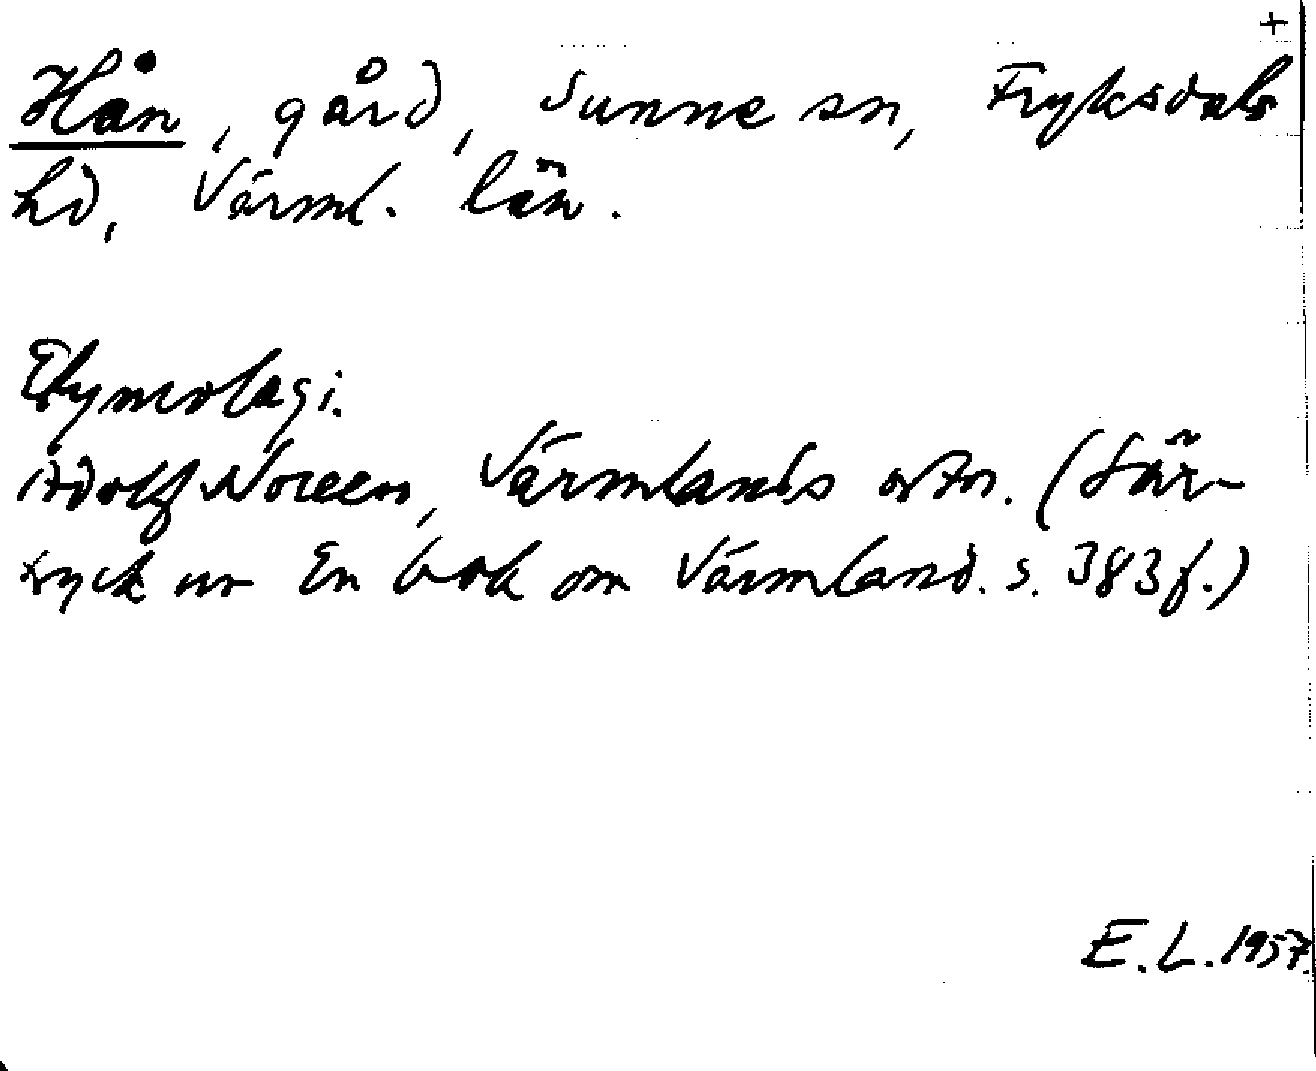 +
Hån, gård, Sunne sn, Fryksdals
hd, Värml. län.
Etymologi.
Adolf Noreen, Värmlands ortn. (Sär-
tryck ur En bok om Värmland. s. 383 f.)
E. L. 1957.